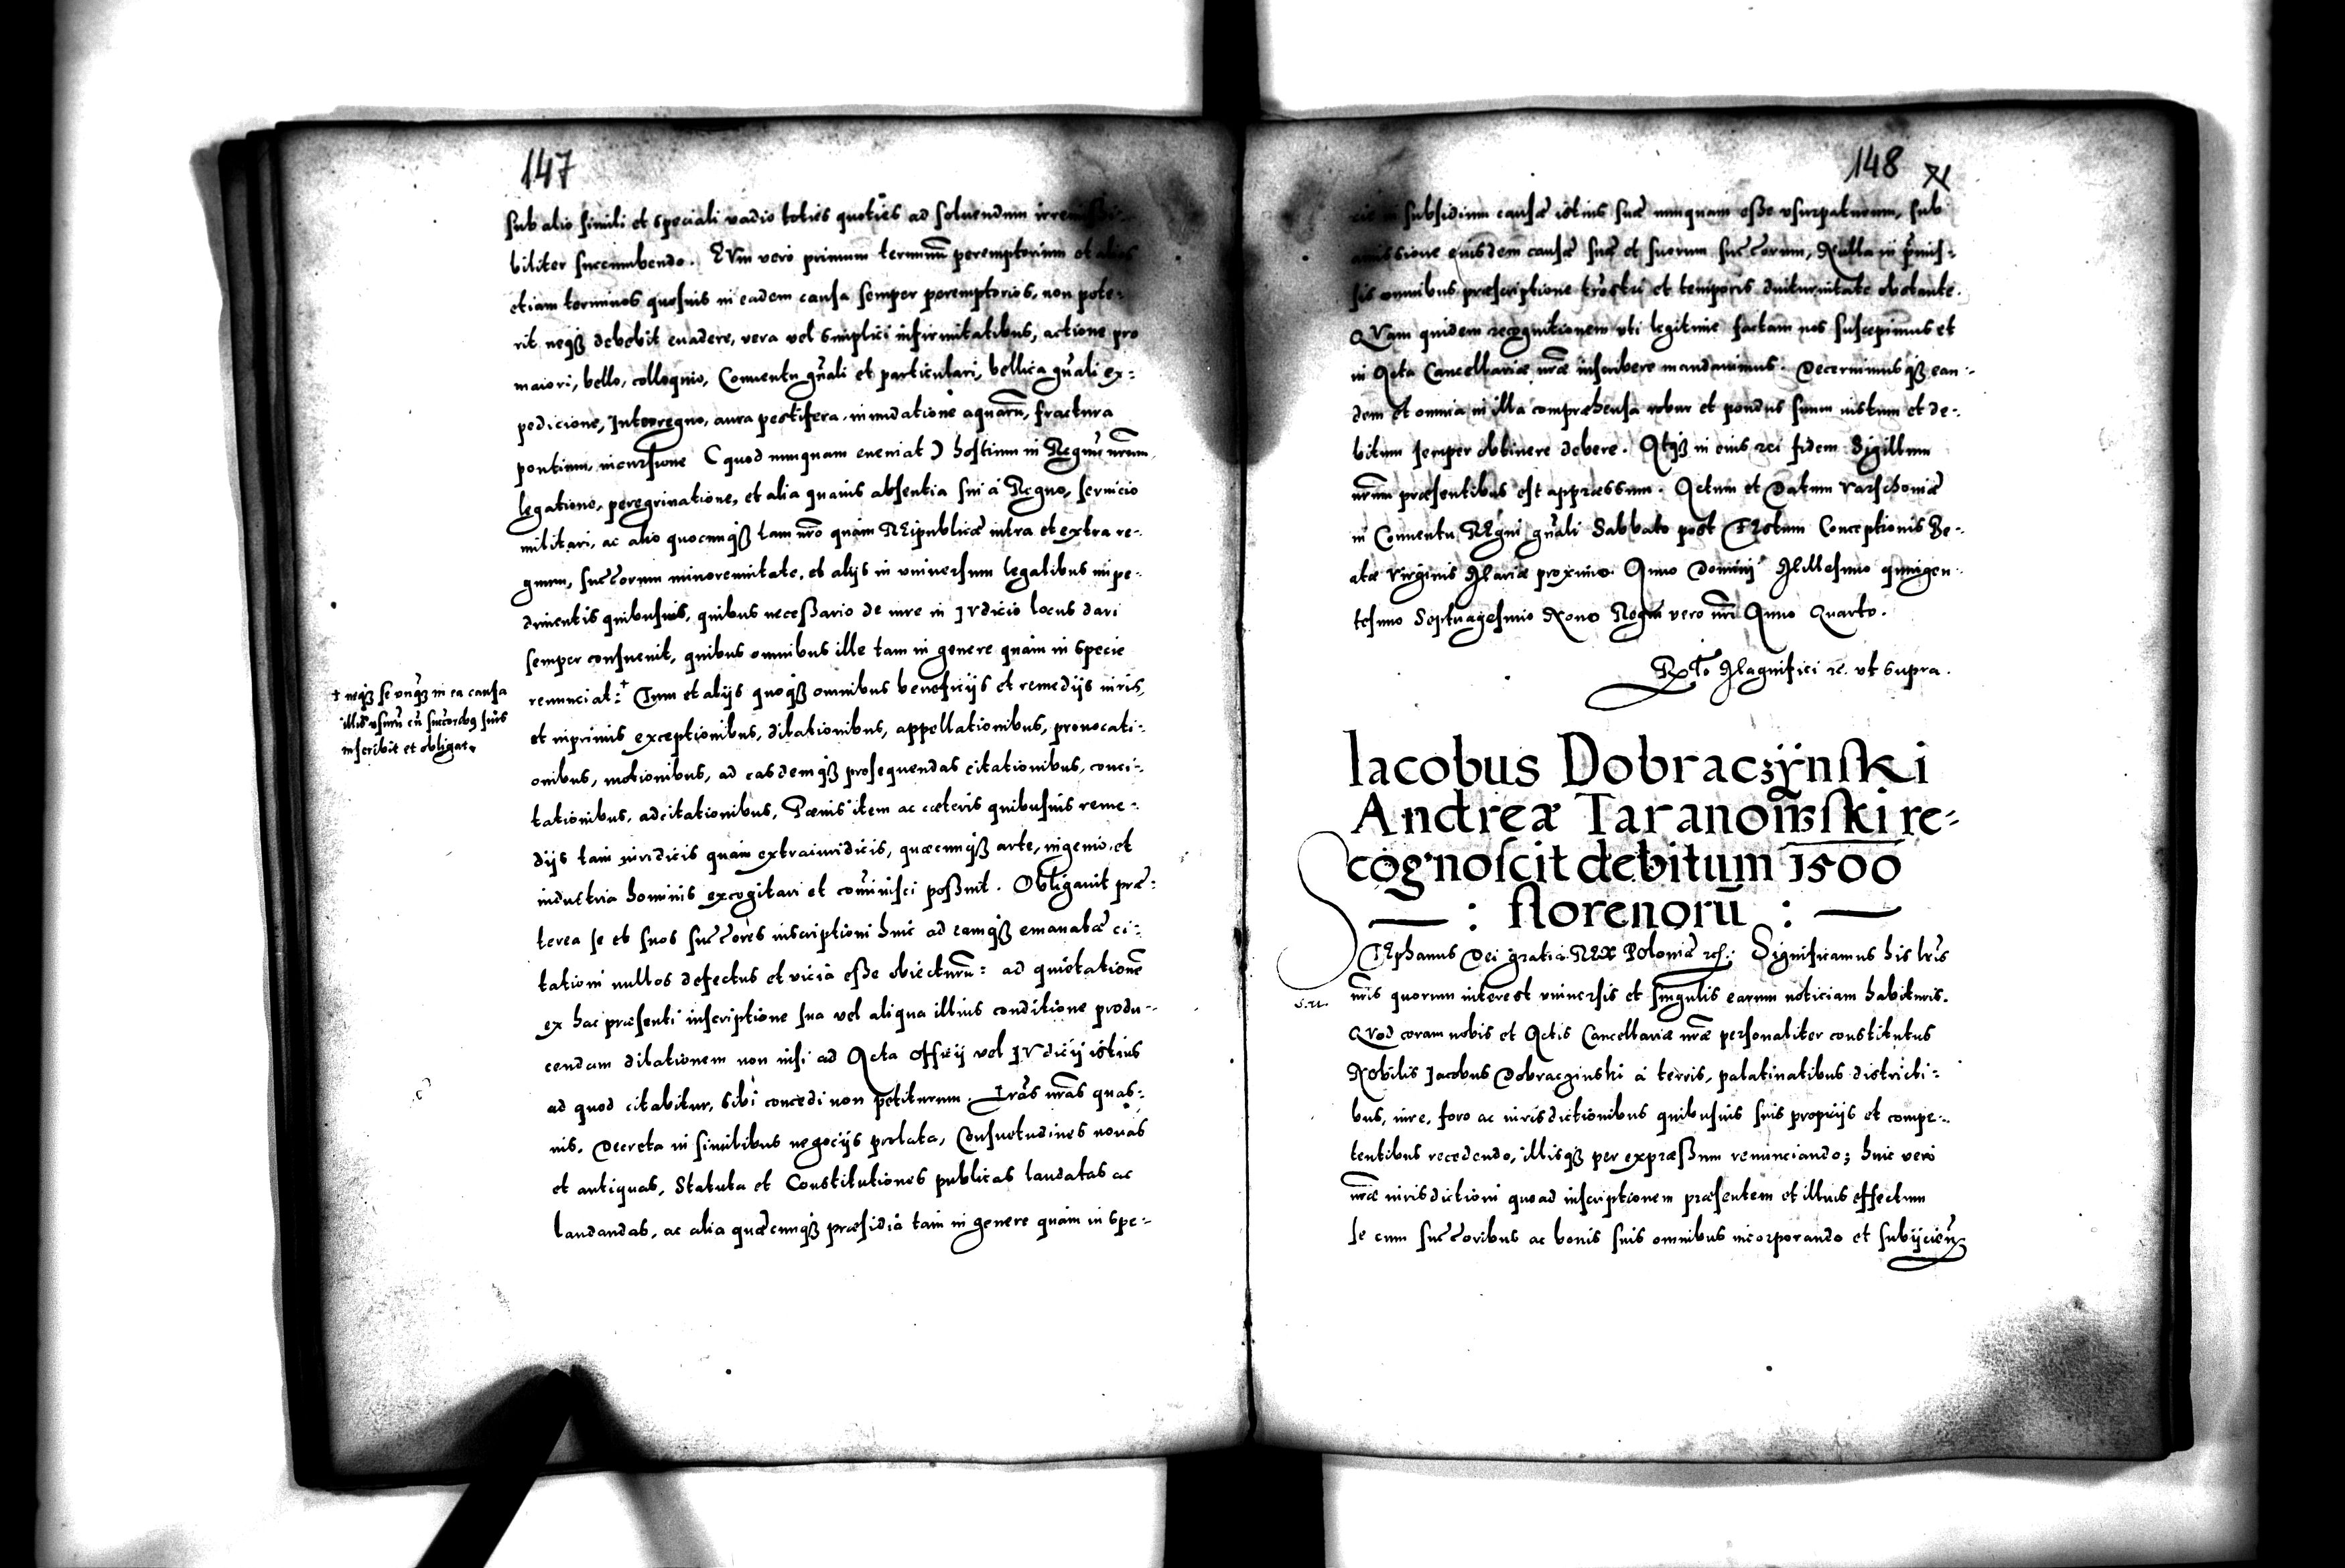 147
sub alio simili et speciali vadio toties quoties ad soluendum irremissi-
biliter succumbendo. EVm vero primum terminũ peremptorium et alios
etiam terminos quosuis in eadem causa semper peremptorios, non pote-
rit neqз debebit euadere, vera vel simplici infirmitatibus, actione pro
maiori, bello, colloquio, Conuentu gñali et particulari, bellica gñali ex-
pedicione, Interregno, aura pestifera, inundatione aquarũ, fractura
pontium, incursione (quod nunquam eueniat) hostium in Regnũ nrũm
legatione, peregrinatione, et alia quauis absentia sui á Regno, seruicio
militari, ac alio quocunqз tam nrõ quàm REipublicæ intra et extra re-
gnum, succõrum minorennitate, et alijs in vniuersum legalibus impe-
dimentis quibusuis, quibus necessario de iure in IVdicio locus dari
semper consueuit, quibus omnibus ille tam in genere quàm in specie
renunciat: + Cum et alijs quoqз omnibus beneficijs et remedijs iuris,
+ neqз se vnq̃з in ea causa
illis vsurũ cũ succorib9 suis
inscribit et obligat.
et inprimis exceptionibus, dilationibus, appellationibus, prouocati-
onibus, motionibus, ad easdemqз prosequendas citationibus, conci-
tationibus, adcitationibus, Pœnis item ac cæteris quibusuis reme-
dijs tam iuridicis quàm extraiuridicis, quæcunqз arte, ingenio, et
industria hominis excogitari et com̃inisci possunt. Obligauit præ-
terea se et suos succõres inscriptioni huic ad eamqз emanatæ ci-
tationi nullos defectus et vicia esse obiecturũ: ad quietationẽ
ex hac præsenti inscriptione sua vel aliqua illius conditione produ-
cendam dilationem non nisi ad Acta officij vel IVdicij istius
ad quod citabitur, sibi concedi non petiturum. Lrãs nrãs quas-
uis, Decreta in similibus negocijs prolata, Consuetudines nouas
et antiquas, Statuta et Constitutiones publicas laudatas ac
laudandas, ac alia quæcunqз præsidia tam in genere quàm in spe-
148
cie in subsidium causæ istius suæ nunquam esse vsurpaturum, sub
amissione eiusdem causæ suæ et suorum succõrum, Nulla in p̃mis-
sis omnibus præscriptione trestri et temporis diuturnitate obstante.
QVam quidem recognitionem vti legitime factam nos suscepimus et
in Acta Cancellariæ nrãe inscribere mandauimus. Decernimusqз ean-
dem et omnia in illa comprehensa robur et pondus suum iustum et de-
bitum semper obtinere debere. Atqз in eius rei fidem Sigillum
nrũm præsentibus est appressum. Actum et Datum Varschouiæ
in Conuentu REgni gñali Sabbato post FEstum Conceptionis Be-
atæ Virginis Mariæ proximo. Anno Domini Millesimo quingen-
tesimo Septuagesimo Nono Regni vero nrĩ Anno Quarto.
Rtõ Magnifici zc. vt supra.
Iacobus Dobraczÿnski
Andreæ Taranowski re-
cognoscit debitum 1500
: florenorũ :
STEphanus Dei gratia REX Poloniæ zc. Significamus his lrĩs
nrĩs quorum interest vniuersis et singulis earum noticiam habituris.
QVod coram nobis et Actis Cancellariæ nrãe personaliter constitutus
Nobilis Iacobus Dobraczinski á terris, palatinatibus districti-
bus, iure, foro ac iurisdictionibus quibusuis suis proprijs et compe-
tentibus recedendo, illisqз per expressum renunciando; huic vero
nrãe iurisdictioni quoad inscriptionem præsentem et illius effectum
se cum succõribus ac bonis suis omnibus incorporando et subijcieñ